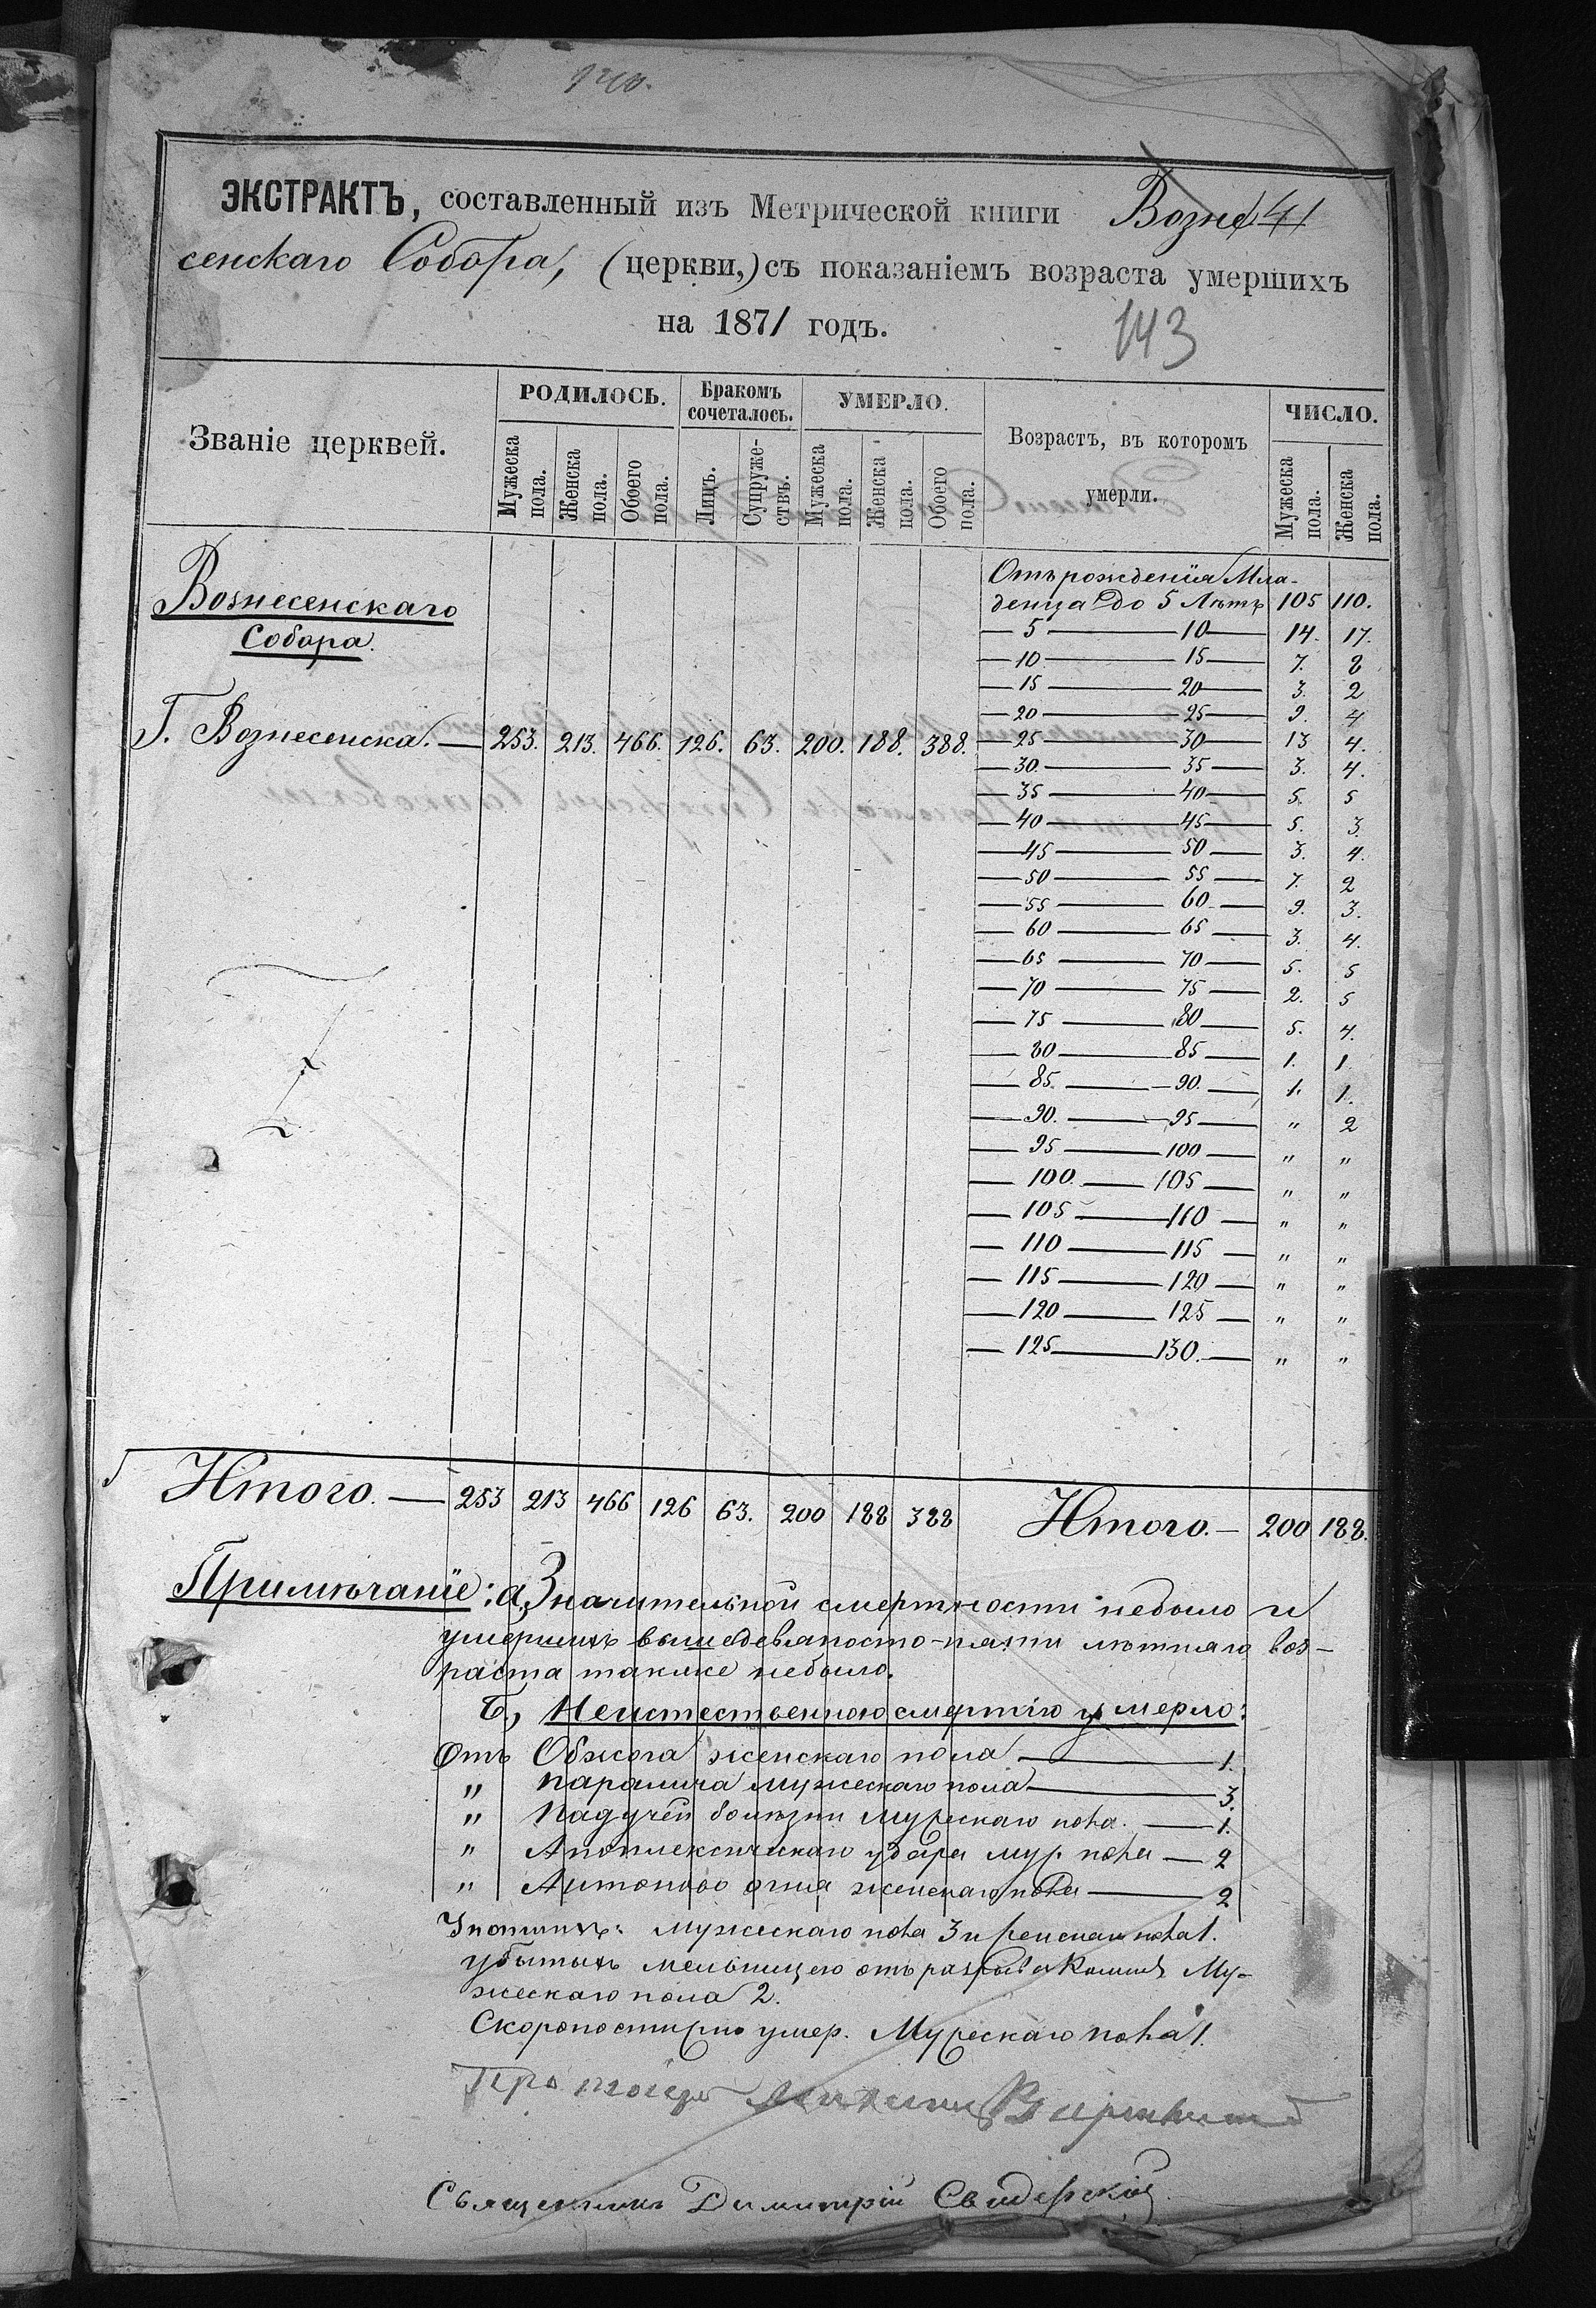 140.
ЭКСТРАКТЪ, составленный изъ Метрической книги Возне 41
сенскаго Собора, (церкви,) съ показаніемъ возраста умершихъ
на 1871 годъ.
143
Званіе церквей.
РОДИЛОСЬ.
Бракомъ сочеталось.
УМЕРЛО.
Возрастъ, въ которомъ умерли.
ЧИСЛО.
Мужеска пола. Женска пола. Обоего пола. Лицъ. Супружествъ. Мужеска пола. Женска пола. Обоего пола. Мужеска пола. Женска пола.
Вознесенскаго
Собора.
Г. Вознесенска. — 253. 213. 466. 126. 63. 200. 188. 388.
Отъ рожденія Мла-
денца до 5 Лѣтъ 105 110.
— 5 — 10 — 14. 17.
— 10 — 15 — 7. 8
— 15 — 20 — 3. 2
— 20 — 25 — 9. 4
— 25 — 30 — 13 4.
— 30. — 35 — 3. 4.
— 35 — 40 — 5. 5
— 40 — 45 — 5. 3.
— 45 — 50 — 3. 4.
— 50 — 55 — 7. 2
— 55 — 60 — 9. 3.
— 60 — 65 — 3. 4.
— 65 — 70 — 5. 5
— 70 — 75 — 2. 5
— 75 — 80 — 5. 4.
— 80 — 85 — 1. 1.
— 85. — 90. — 1. 1.
— 90. — 95 — " 2
— 95 — 100 — " "
— 100. — 105 — " "
— 105 — 110 — " "
— 110 — 115 — " "
— 115 — 120 — " "
— 120 — 125 — " "
— 125 — 130. — " "
Итого. — 253 213 466 126 63. 200 188 388 Итого. — 200 188.
Примѣчаніе: а, Значительной смертности небыло и
умершихъ выше девяносто-пяти лѣтняго воз-
раста также небыло.
Б, Неистественною смертію умерло:
Отъ Обжога женскаго пола — 1.
" паралича мужескаго пола — 3.
" Падучей болѣзни мужескаго пола. — 1.
" Апоплексическаго удара муж. пола — 2
" Антонова огня женскаго пола — 2
Утопшихъ: мужескаго пола 3 и женскаго пола 1.
убитыхъ мельницею отъ разрыва Камня Му-
жескаго пола 2.
Скоропостижно умер. Мужескаго пола 1.
Протоіерей
Священникъ Димитрій Свидерскій